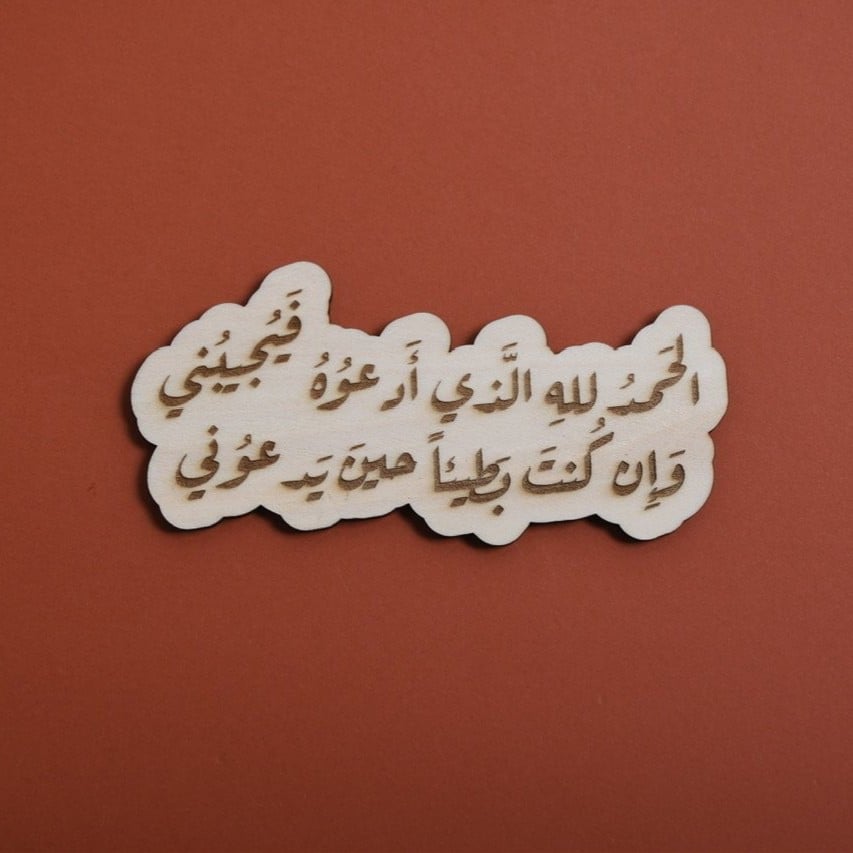 الحَمدُ للهِ الَّذي أَدعُوُهُ فَيُجيبُني
وَإِن كُنتَ بَطيئاً حينَ يَدعُوني